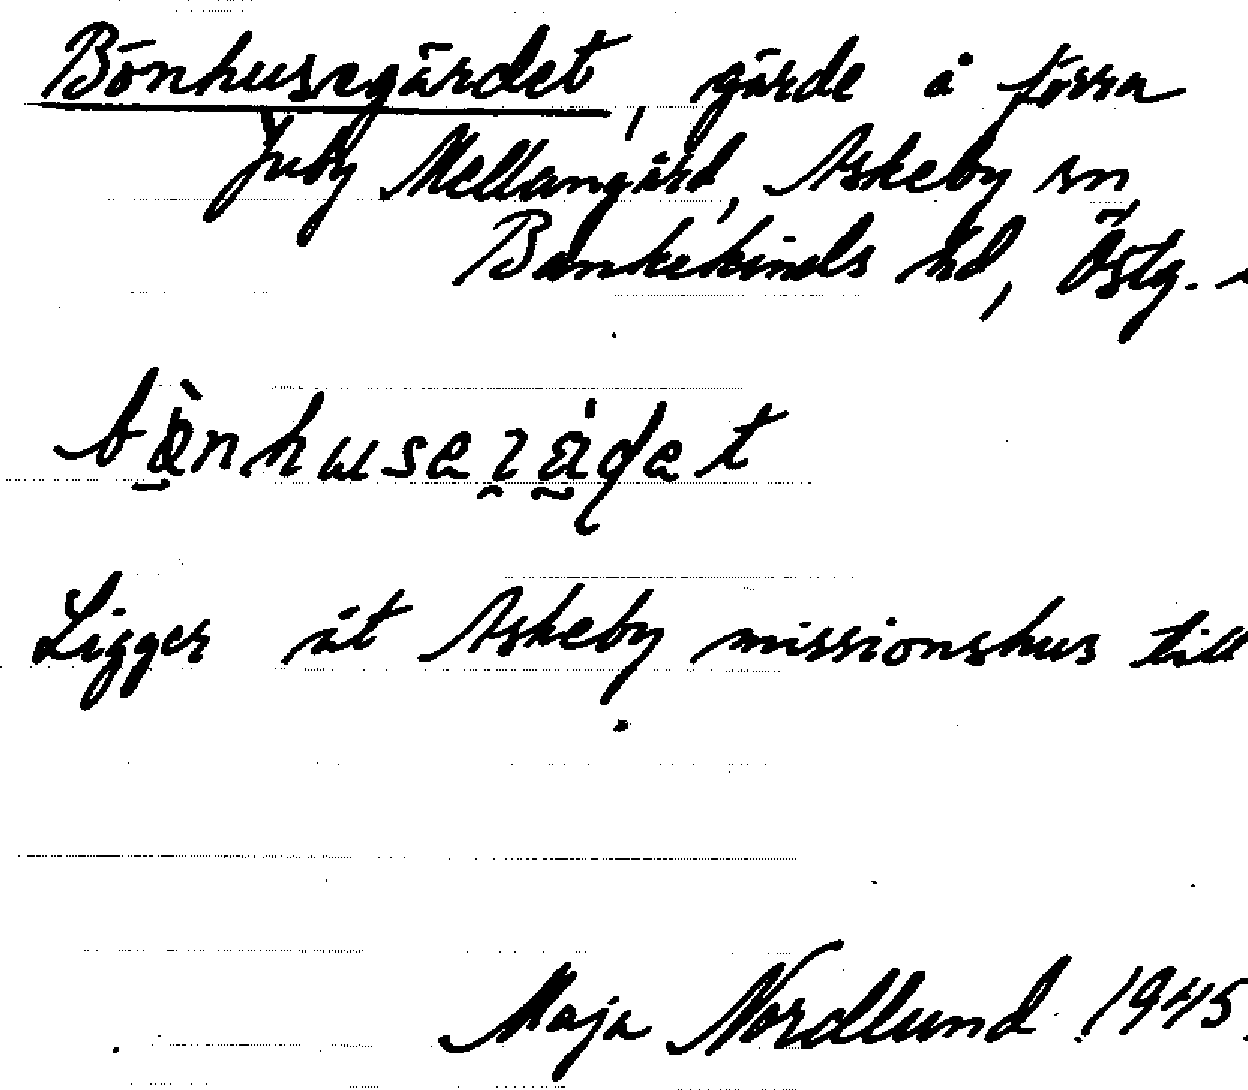 Bönhusegärdet, gärde å förra
Juby Mellangård, Askeby sn,
Bankekinds hd, Östg.
Ligger åt Askeby missionshus till
.
Maja Nordlund 1945.